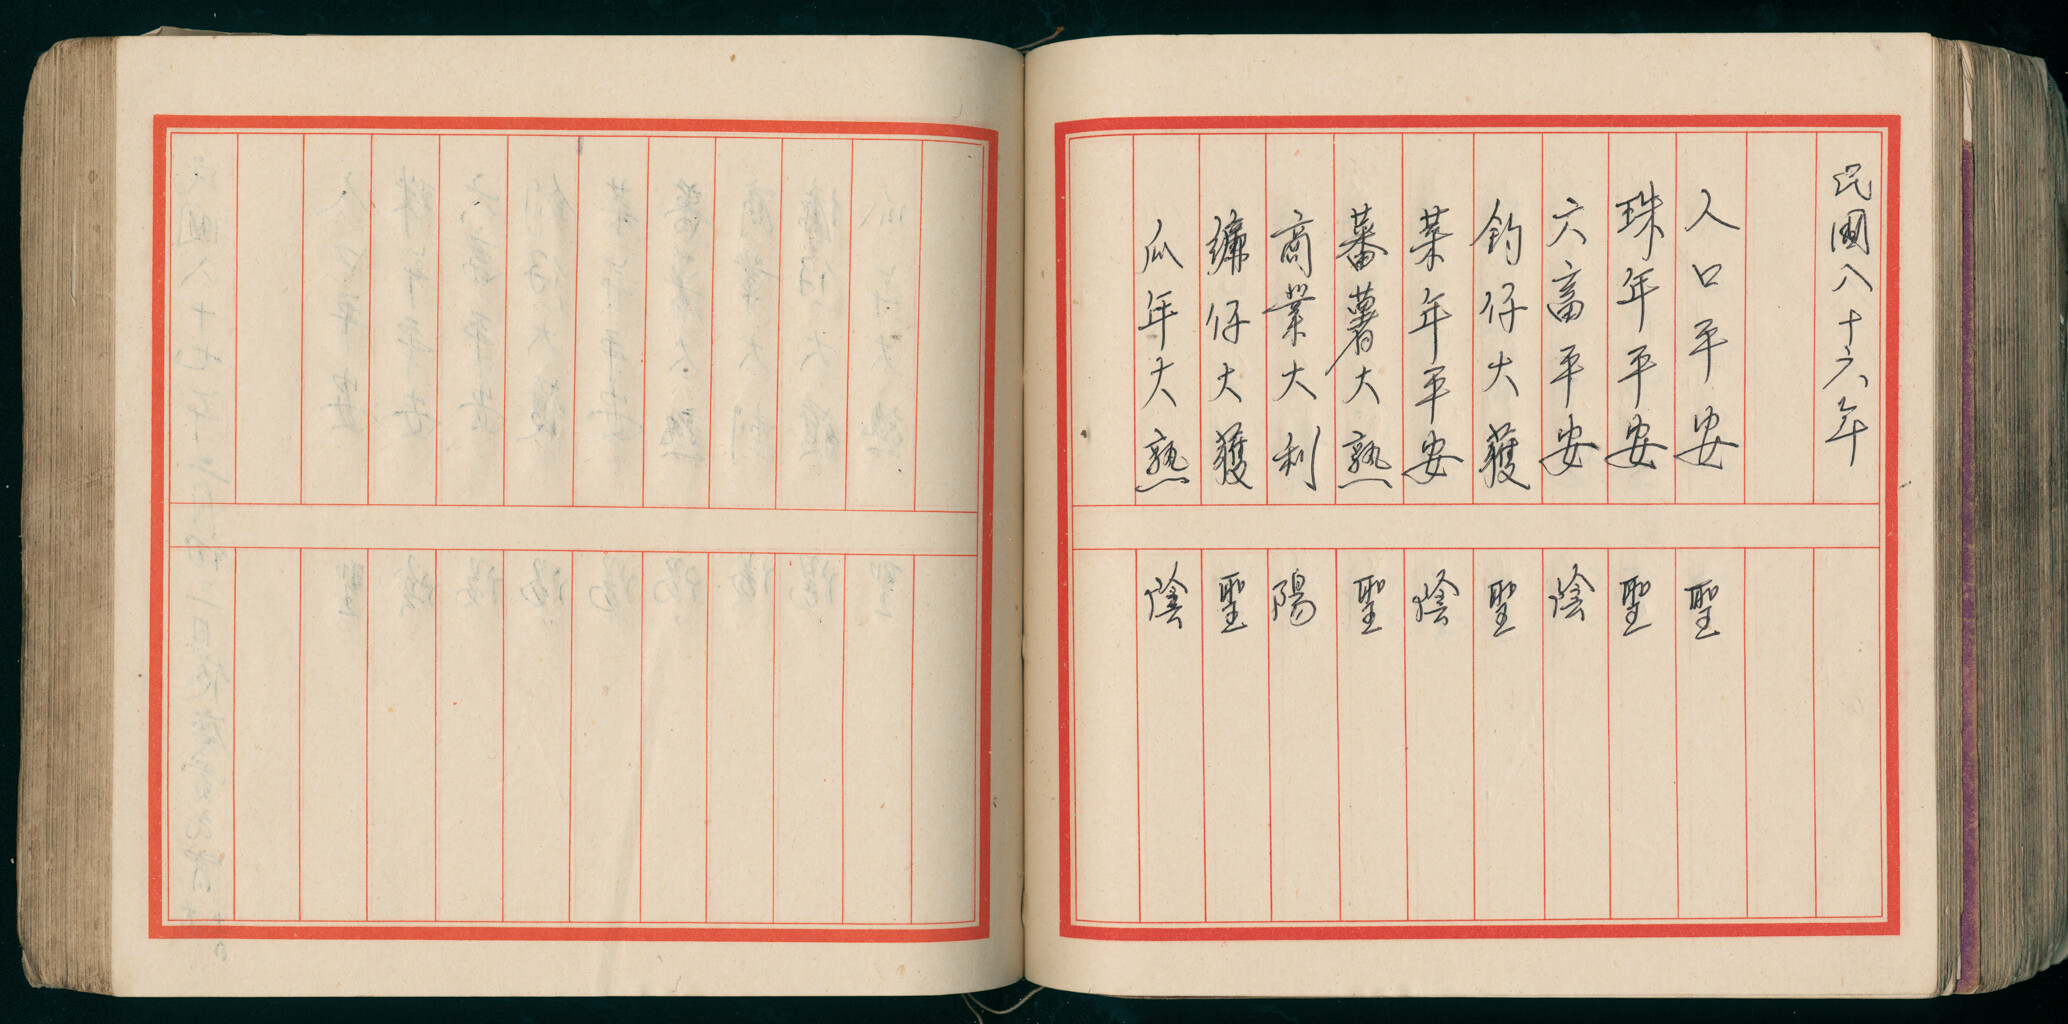 民國八十六年
人口平安 聖
珠年平安 聖
六畜平安 陰
釣仔大獲 聖
菜年平安 陰
蕃薯大熟 聖
商業大利 陽
仔大獲 聖
瓜年大熟 陰